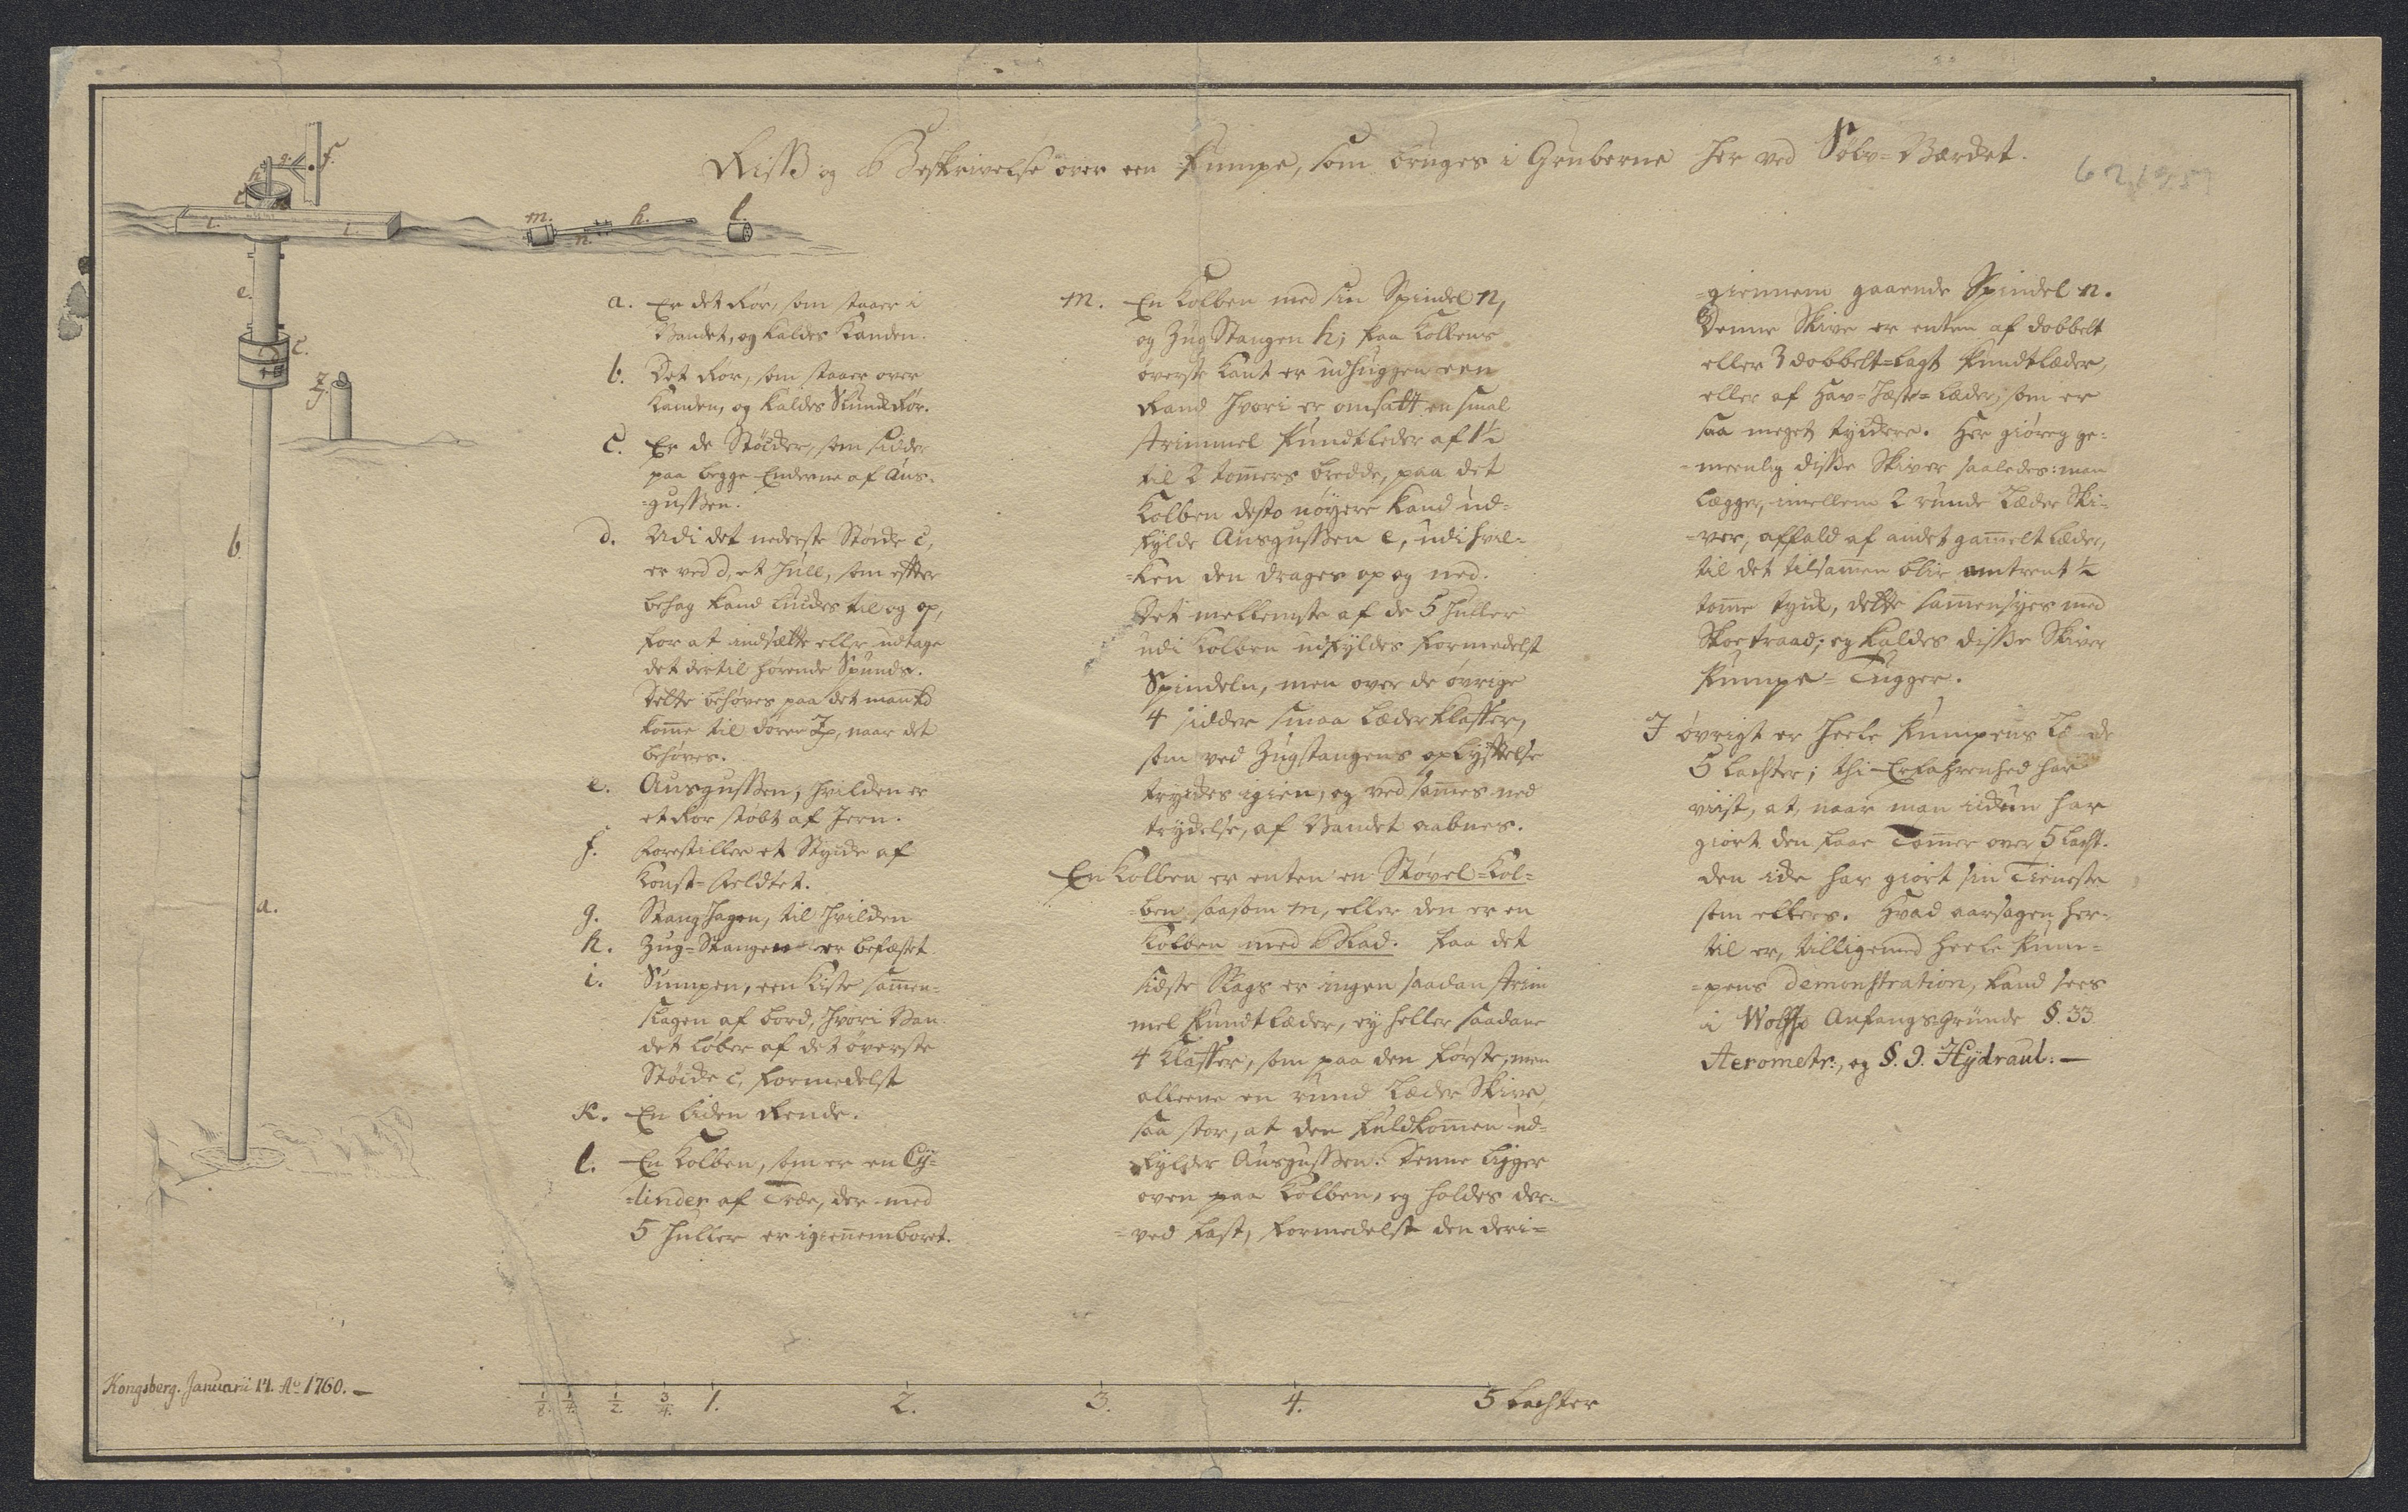 Risß og Beskrivelse over een Pumpe, som bruges i Gruberne her ved Sølv=Værcket.
f.
g.
h.
c.
i. i.
m. h. l.
n.
e.
c.
Z.
b.
a.
a. Er det Rør, som staaer i
Vandet, og kaldes Kanden.
b. Det Rør, som staaer over
Kanden, og kaldes StundRør.
c. Er de Støcker, som sidder
paa begge Enderne af Aus-
=gussen.
d. Udi det nederste Støcke c,
er ved d, et Hull, som efter
behag kand luckes til og op,
for at indsætte eller udtage
det dertil hørende Spunds.
Dette behøves paa det man kd
kom̄e til døren Z, naar det
behøves.
e. Ausgussen, hvilcken er
et Rør støbt af Jern.
f. Forestiller et Stycke af
Konst=Feldtet.
g. Stanghagen, til hvilcken
h. Zug=Stangen er befæstet.
i. Sumpen, een Kiste sam̄en-
slagen af bord, hvori Van-
det løber af det øverste
Støcke c, formedelst
K. En liden Rende.
l. En Kolben, som er en Cy-
=linder af Træe, der med
5 huller er igien̄emboret.
m. En Kolben med sin Spindel n,
og Zug Stangen h; paa Kolbens
øverste Kant er udhuggen een
Rand hvori er omsatt en smal
strimmel Pundtleder af 1½
til 2 tom̄ers bredde, paa det
Kolben desto nøyere kand ud=
fylde Ausgussen e, udi hvil-
=ken den drages op og ned.
Det mellemste af de 5 huller
udi Kolben udfyldes formedelst
Spindeln, men over de øvrige
4 sidder smaa Læderklaffer,
som ved Zugstangens opløftelse
tryckes igien, og ved sam̄es ned
tryckelse, af Vandet aabnes.
En Kolben er enten en Støvel=Kol=
=ben saasom m, eller den er en
Kolben med Blad. Paa det
sidste Slags er ingen saadan strim
mel Pundtlæder, ey heller saadane
4 Klaffer, som paa den første; men
alleene en rund Læder Skive,
saa stor, at den fuldkom̄en ud=
fylder Ausgussen. Denne ligger
oven paa Kolben, og holdes der-
=ved fast, formedelst den deri=
=giennem gaaende Spindel n.
Denne Skive er enten af dobbelt
eller 3 dobbelt=lagt Pundtlæder,
eller af Hav=Hæste=Læder, som er
saa meget tyckere. Her giøres ge=
=meenlig disse Skiver saaledes: man
lægger, imellem 2 runde Læder Ski=
=ver, affald af andet gam̄elt Læder,
til det tilsam̄en blir omtrent ½
tom̄e tyck, dette sam̄ensyes med
Skoetraad; og kaldes disse Skiver
Pumpe=Tugger.
I øvrigt er heele Pumpens Længde
5 Lachter; thi Erfahrenhed har
viist, at, naar man iidkun har
giort den faae Tom̄er over 5 Lacht.
den icke har giort sin Tieneste
som ellers. Hvad aarsagen her-
til er, tilligemed heele Pum=
=pens demonstration, kand sees
i Wolffs Anfangsgründe §. 33
Aerometr., og §. 9. Hydraul. —
Kongsberg. Januarii 14. Ao 1760. —
1/8. 1/4. 1/2. 3/4. 1. 2. 3. 4. 5 Lachter